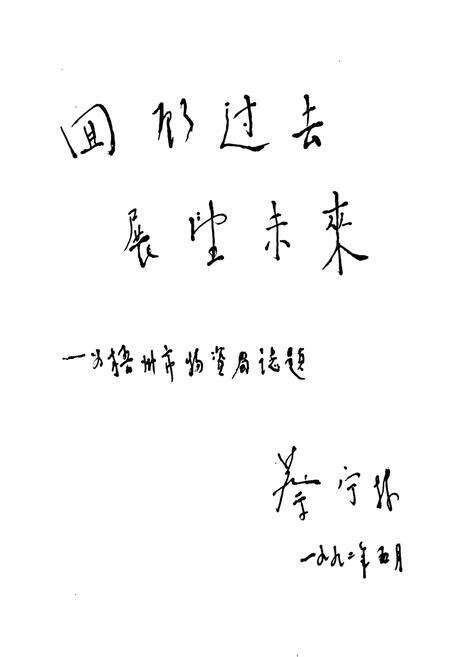 回顾过去
展望未來
—为梧州市物资局志題
蔡宁林
一九九二年五月